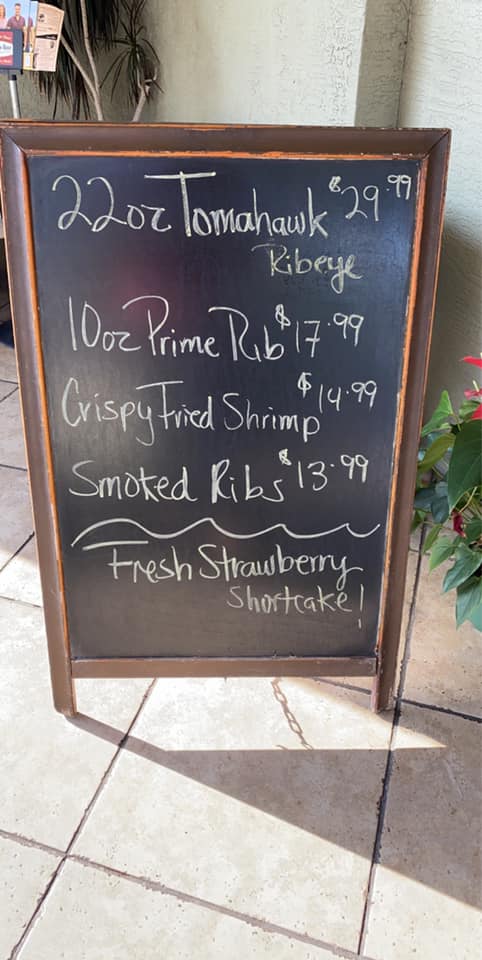 22oz Tomahawk $29.99
Ribeye
10oz Prime Rib $17.99
Crispy Fried Shrimp $14.99
Smoked Ribs $13.99
Fresh Strawberry
Shortcake!